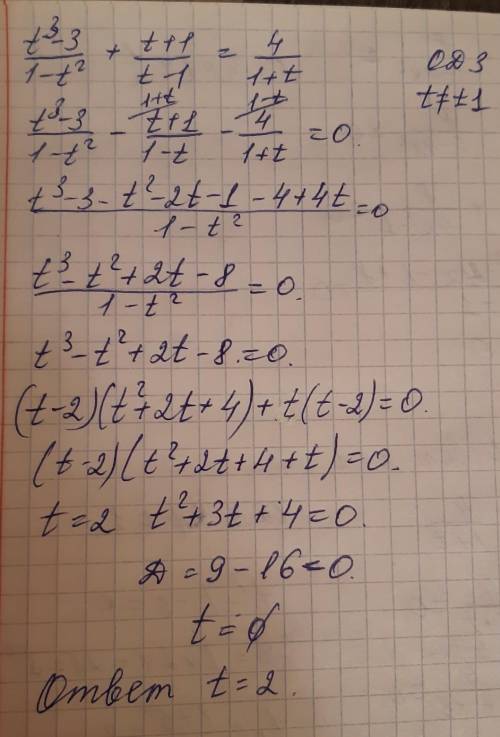 (t³-3)/(1-t²) + (t+1)/(t-1) = 4/(1+t)
ОДЗ
t≠±1
(t³-3)/(1-t²) - (t+1)/(1-t) - 4/(1+t) = 0.
1+t 1-t
(t³-3-t²-2t-1-4+4t)/(1-t²) = 0
(t³-t²+2t-8)/(1-t²) = 0.
t³-t²+2t-8.=0.
(t-2)(t²+2t+4)+t(t-2)=0.
(t-2)(t²+2t+4+t)=0.
t=2 t²+3t+4=0.
Д=9-16<0.
t=∅
Ответ t=2.